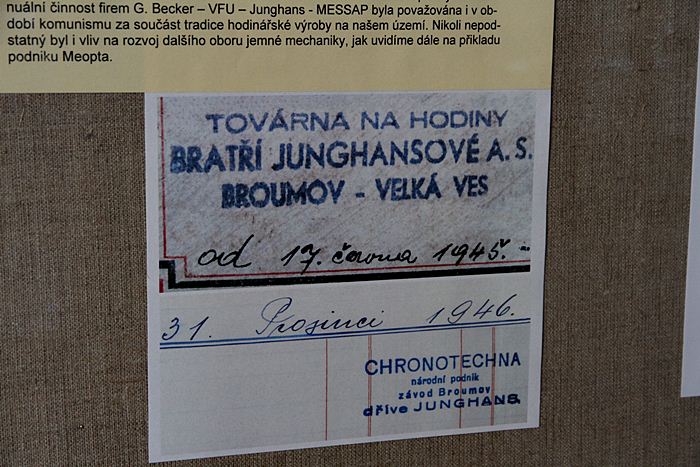 nuální činnost firem G. Becker – VFU – Junghans - MESSAP byla považována i v ob-
dobí komunismu za součást tradice hodinářské výroby na našem území. Nikoli nepod-
statný byl i vliv na rozvoj dalšího oboru jemné mechaniky, jak uvidíme dále na příkladu
podniku Meopta.
TOVÁRNA NA HODINY
BRATŘÍ JUNGHANSOVÉ A. S.
BROUMOV - VELKÁ VES
od 17. června 1945. -
31. Prosinci 1946.
CHRONOTECHNA
národní podnik
závod Broumov
dříve JUNGHANS.